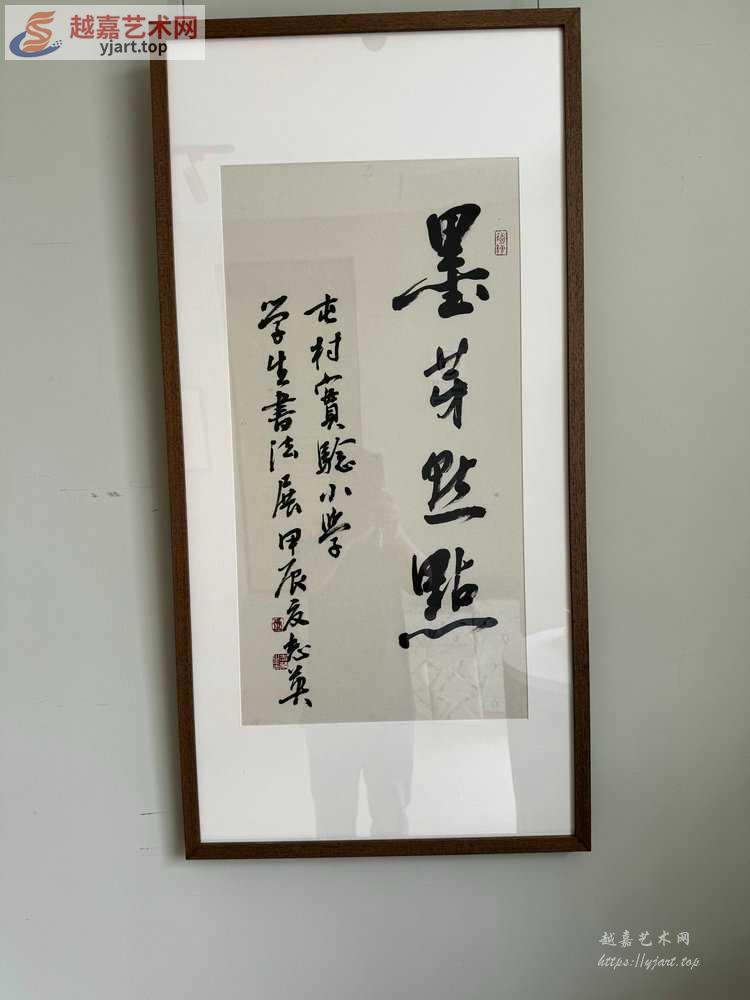 越嘉艺术网
yjart.top
墨芽点點
屯村實驗小學
学生書法展甲辰夏志英
越嘉艺术网
https://yjart.top